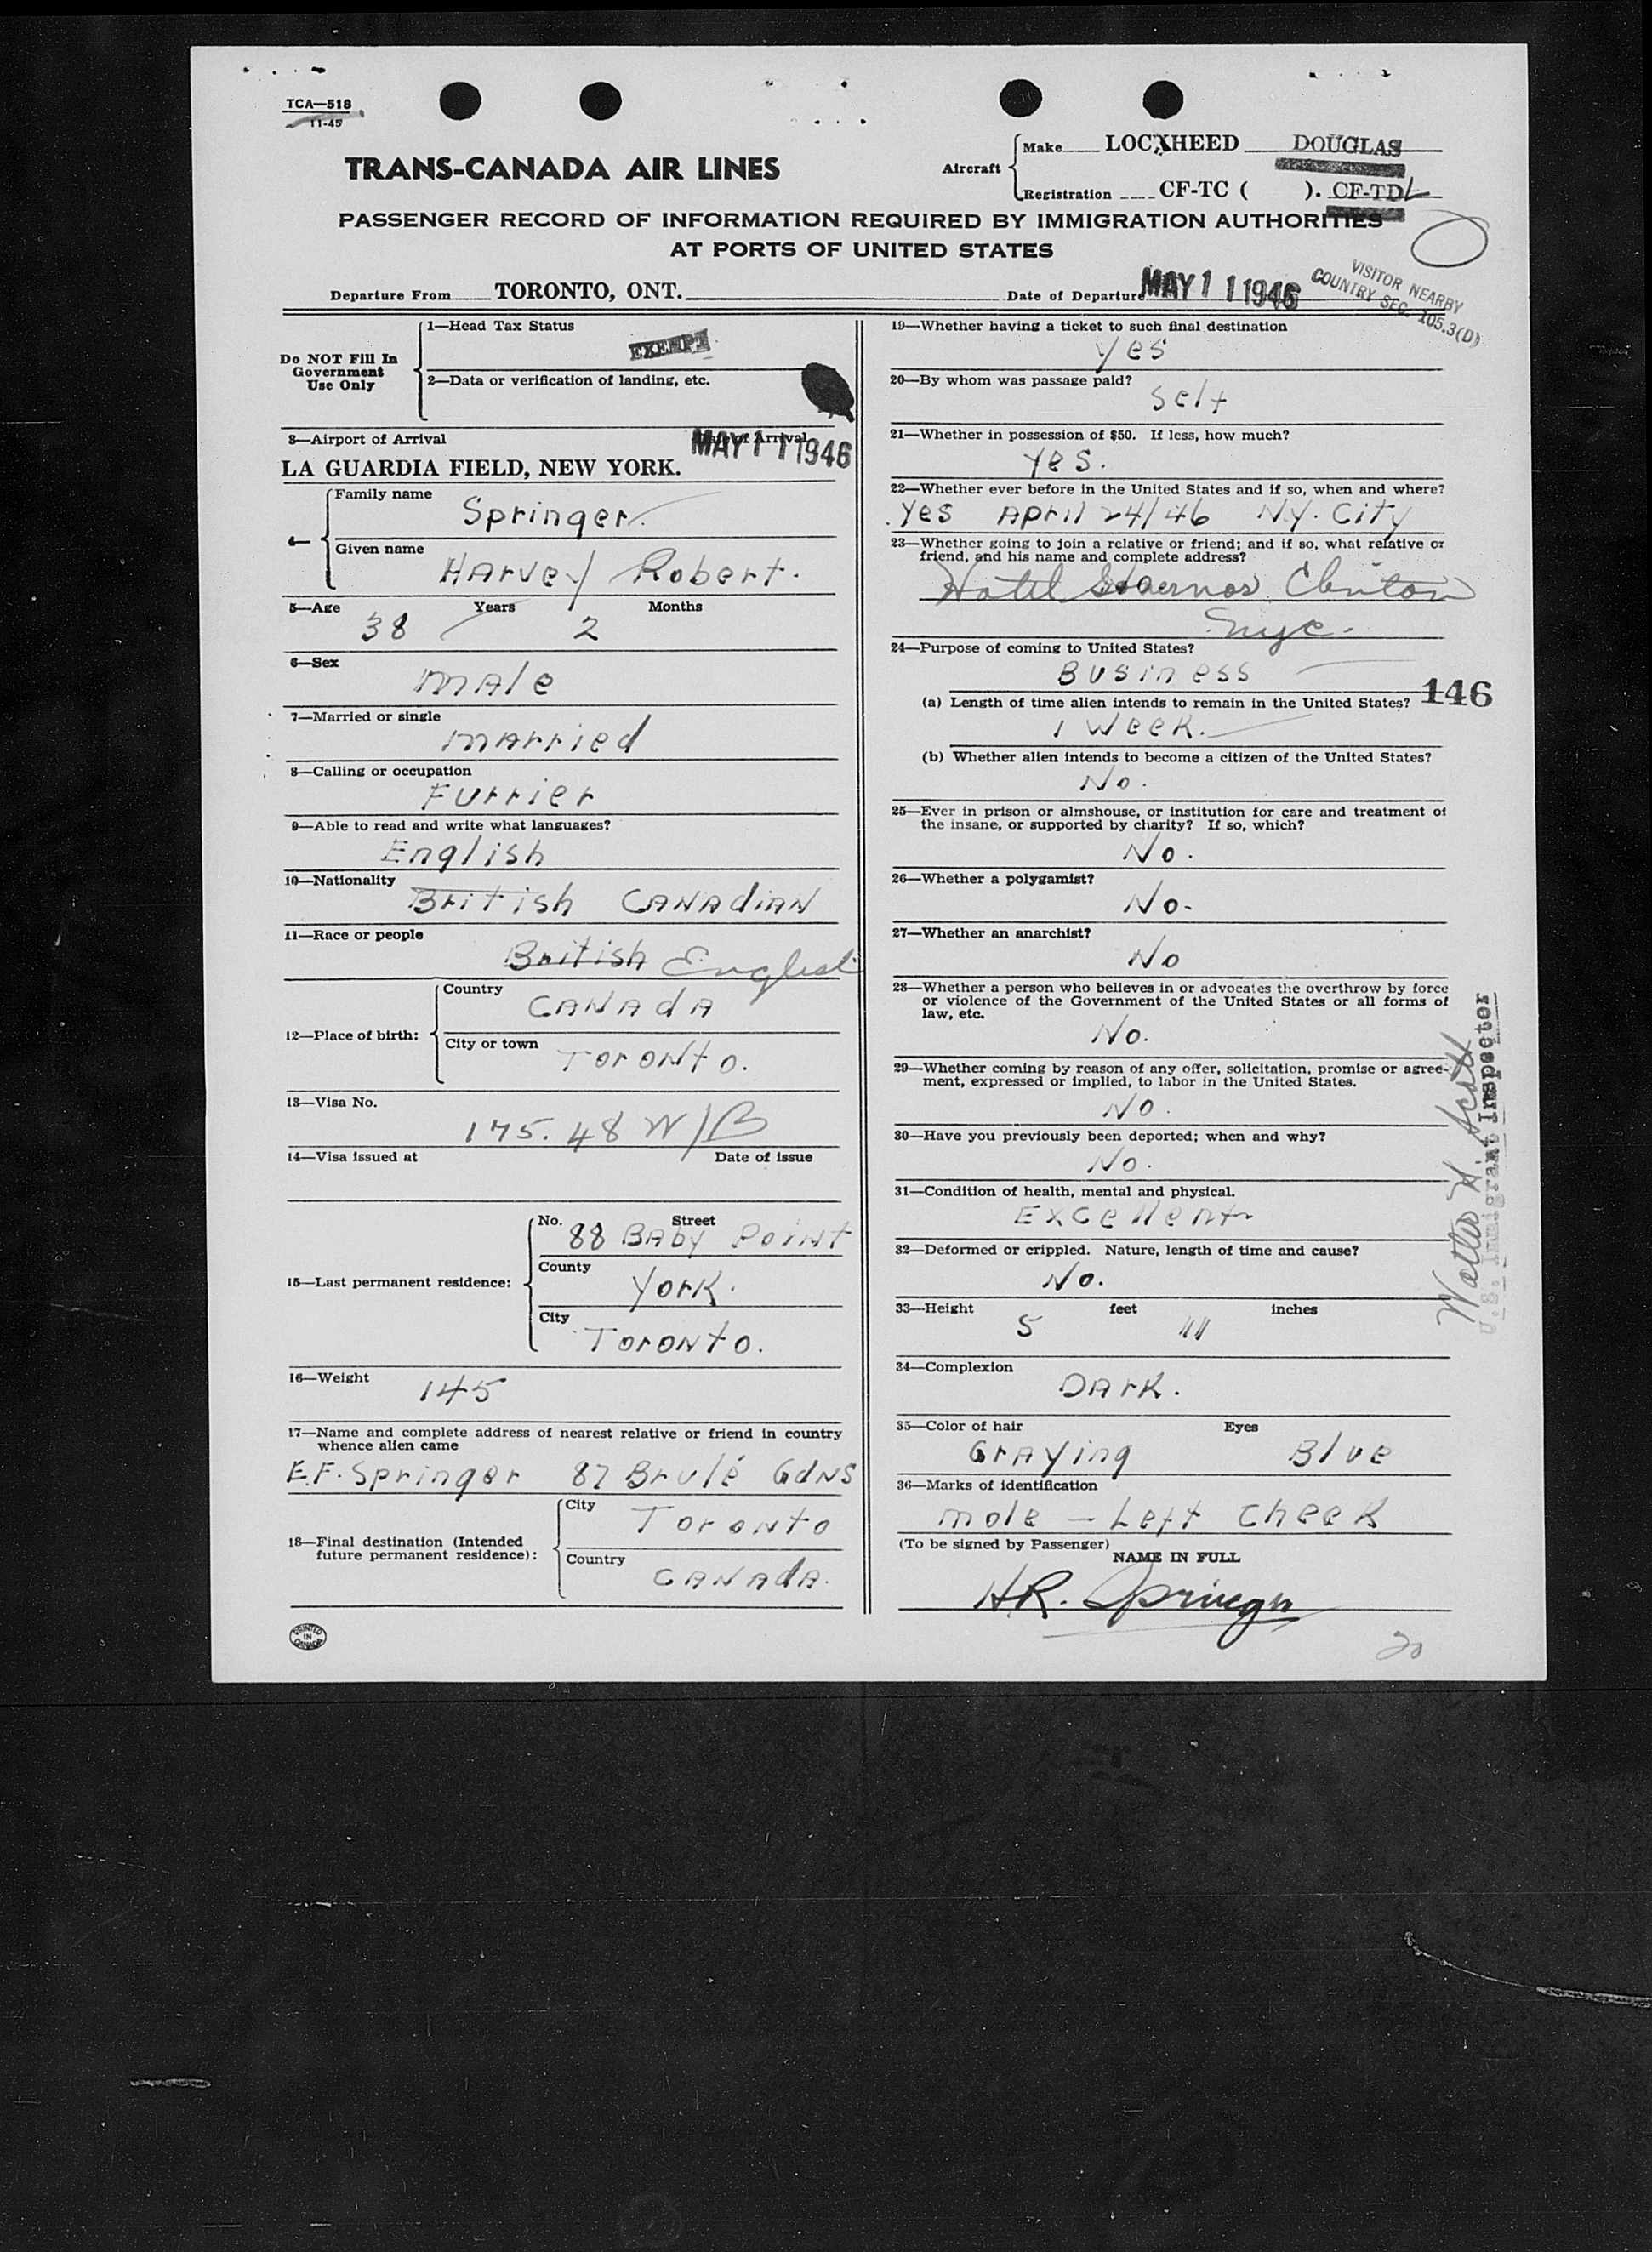 TCA—518
11-45
TRANS-CANADA AIR LINES
Aircraft
Make LOCKHEED DOUGLAS
Registration CF-TC ( ). CF-TDL
PASSENGER RECORD OF INFORMATION REQUIRED BY IMMIGRATION AUTHORITIES
AT PORTS OF UNITED STATES
Departure From TORONTO, ONT. Date of Departure MAY 11 1946
VISITOR NEARBY
COUNTRY SEC. 105.3(D)
Do NOT Fill In
Government
Use Only
1—Head Tax Status
EXEMPT
2—Data or verification of landing, etc.
3—Airport of Arrival Date of Arrival
MAY 11 1946
LA GUARDIA FIELD, NEW YORK.
4—
Family name
Springer
Given name
Harvey Robert.
5—Age Years Months
38 2
6—Sex
Male
7—Married or single
Married
8—Calling or occupation
Furrier
9—Able to read and write what languages?
English
10—Nationality
British Canadian
11—Race or people
British English
12—Place of birth:
Country
Canada
City or town
Toronto.
13—Visa No.
175.48 W/B
14—Visa issued at Date of issue
15—Last permanent residence:
No. Street
88 Baby Point
County
York.
City
Toronto.
16—Weight
145
17—Name and complete address of nearest relative or friend in country
whence alien came
E.F. Springer 87 Brulé Gdns
18—Final destination (Intended
future permanent residence):
City
Toronto
Country
Canada.
PRINTED
IN
CANADA
19—Whether having a ticket to such final destination
Yes
20—By whom was passage paid?
Self
21—Whether in possession of $50. If less, how much?
Yes.
22—Whether ever before in the United States and if so, when and where?
Yes April 24/46 N.Y. City
23—Whether going to join a relative or friend; and if so, what relative or
friend, and his name and complete address?
Hotel Governor Clinton
NYC.
24—Purpose of coming to United States?
Business
146
(a) Length of time alien intends to remain in the United States?
1 Week.
(b) Whether alien intends to become a citizen of the United States?
No.
25—Ever in prison or almshouse, or institution for care and treatment of
the insane, or supported by charity? If so, which?
No.
26—Whether a polygamist?
No.
27—Whether an anarchist?
No
28—Whether a person who believes in or advocates the overthrow by force
or violence of the Government of the United States or all forms of
law, etc.
No.
29—Whether coming by reason of any offer, solicitation, promise or agree-
ment, expressed or implied, to labor in the United States.
No.
30—Have you previously been deported; when and why?
No.
31—Condition of health, mental and physical.
Excellent
32—Deformed or crippled. Nature, length of time and cause?
No.
33—Height feet inches
5 11
34—Complexion
Dark.
35—Color of hair Eyes
Graying Blue
36—Marks of identification
Mole — Left Cheek
(To be signed by Passenger)
NAME IN FULL
H.R. Springer
20
Walter H. Scott
U.S. Immigrant Inspector